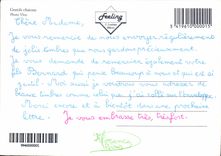 Gentils chatons
Photo Vloo
Feeling
3 419610 000015
Chère Madame,
Je vous remercie de nous envoyer régulièrement
de jolis timbres que nous gardons précieusement.
Je vous demande de remercier également votre
fils Bernard qui pense beaucoup à nous et qui est si
gentil. Moi aussi je voudrais vous adresser de
beaux timbres comme celui que j'ai collé ci-dessus.
Merci encore et à bientôt dans une prochaine
lettre. Je vous embrasse très, très fort.